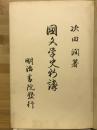 次田潤著
國文學史新講
明治書院發行